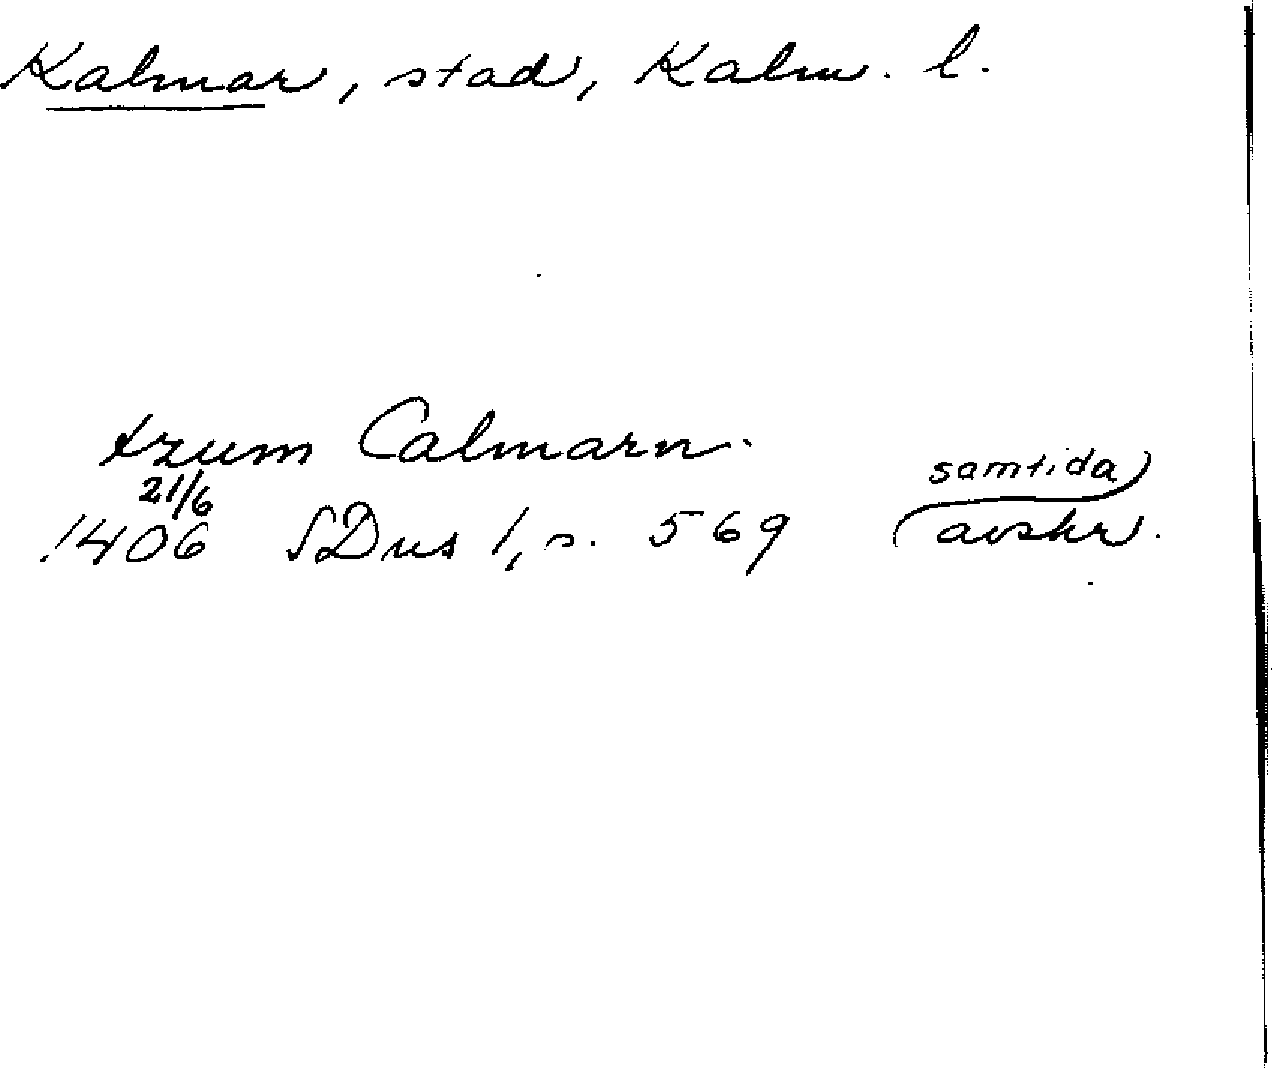 Kalmar, stad, Kalm. l.
tzum Calmarn.
21/6
1406 SDns 1, s. 569 samtida avskr.